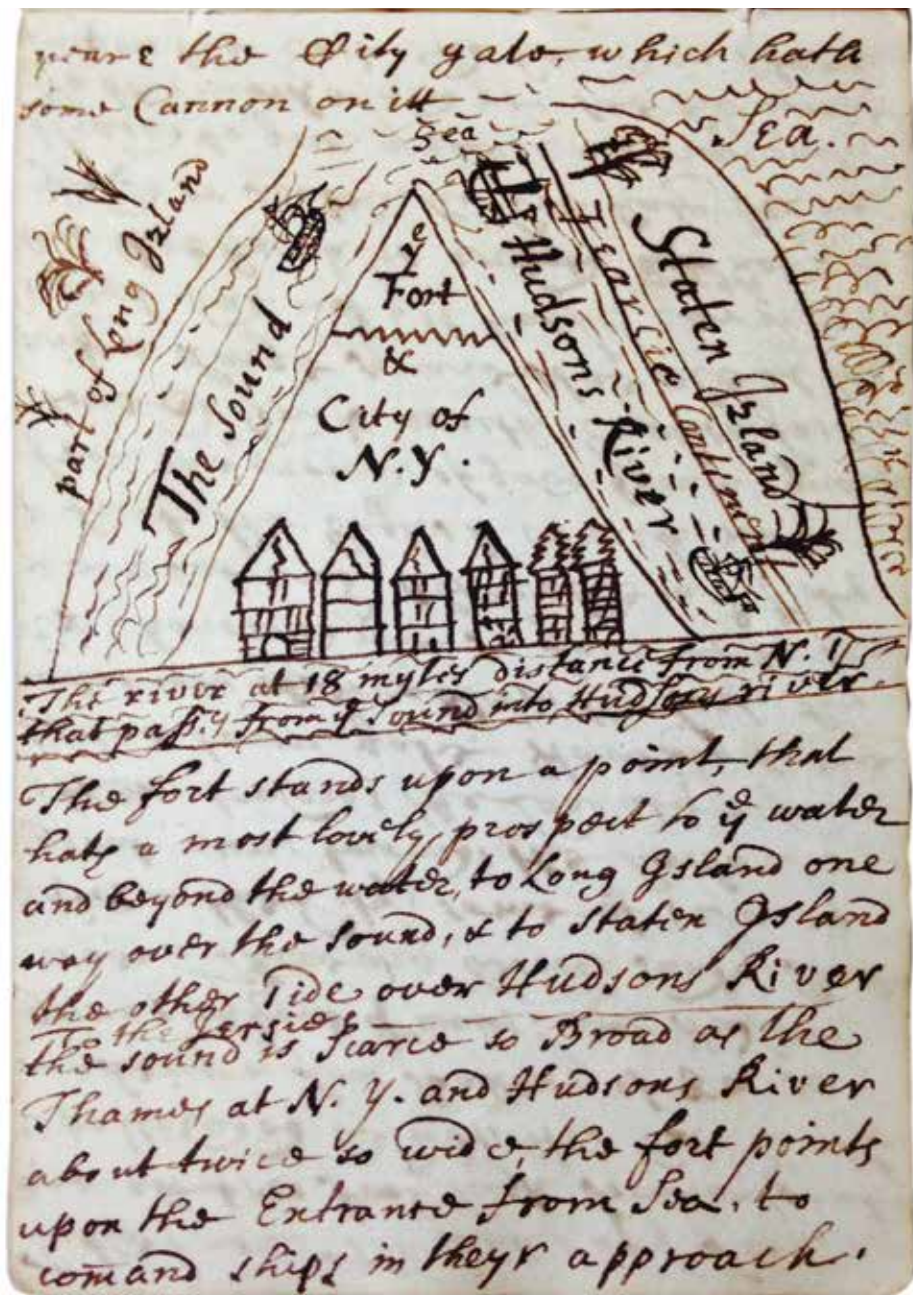 neare the City gate, which hath
some Cannon on itt
Sea
Sea.
part of Long Izland
The Sound
ye
Fort
&
City of
N.Y.
Hudsons River
Jearsie Continent
Staten Izland
The river at 18 myles distance from N. Y
that from ye sound into Hudsons river.
The fort stands upon a point, that
hath a most lovely prospect to ye water
and beyond the water, to Long Island one
way over the sound, & to Staten Island
the other side over Hudsons River
To the Jersies
the sound is scarce so Broad as the
Thames at N. Y. and Hudsons River
about twice so wide, the fort points
upon the Entrance from Sea, to
comand ships in theyr approach.